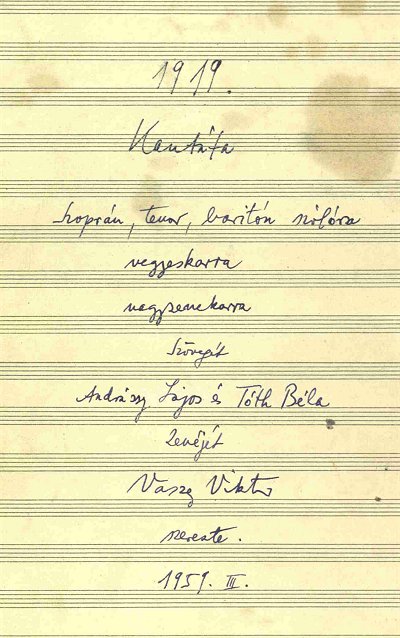 1919.
Kantáta
szoprán, tenor, bariton szólóra
vegyeskarra
nagyzenekarra
Szövegét
Andrássy Lajos és Tóth Béla
Zenéjét
Vaszy Viktor
szerezte.
1959. III.